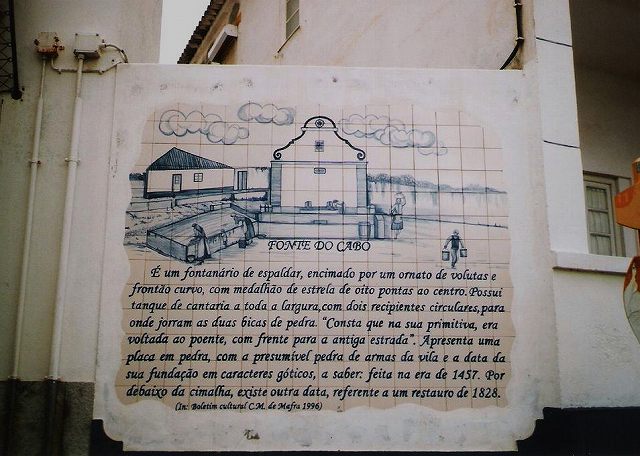 FONTE DO CABO
É um fontanário de espaldar, encimado por um ornato de volutas e
frontão curvo, com medalhão de estrela de oito pontas ao centro. Possui
tanque de cantaria a toda a largura, com dois recipientes circulares, para
onde jorram as duas bicas de pedra. "Consta que na sua primitiva, era
voltada ao poente, com frente para a antiga estrada". Apresenta uma
placa em pedra, com a presumível pedra de armas da vila e a data da
sua fundação em caracteres góticos, a saber: feita na era de 1457. Por
debaixo da cimalha, existe outra data, referente a um restauro de 1828.
(In: Boletim cultural C.M. de Mafra 1996)